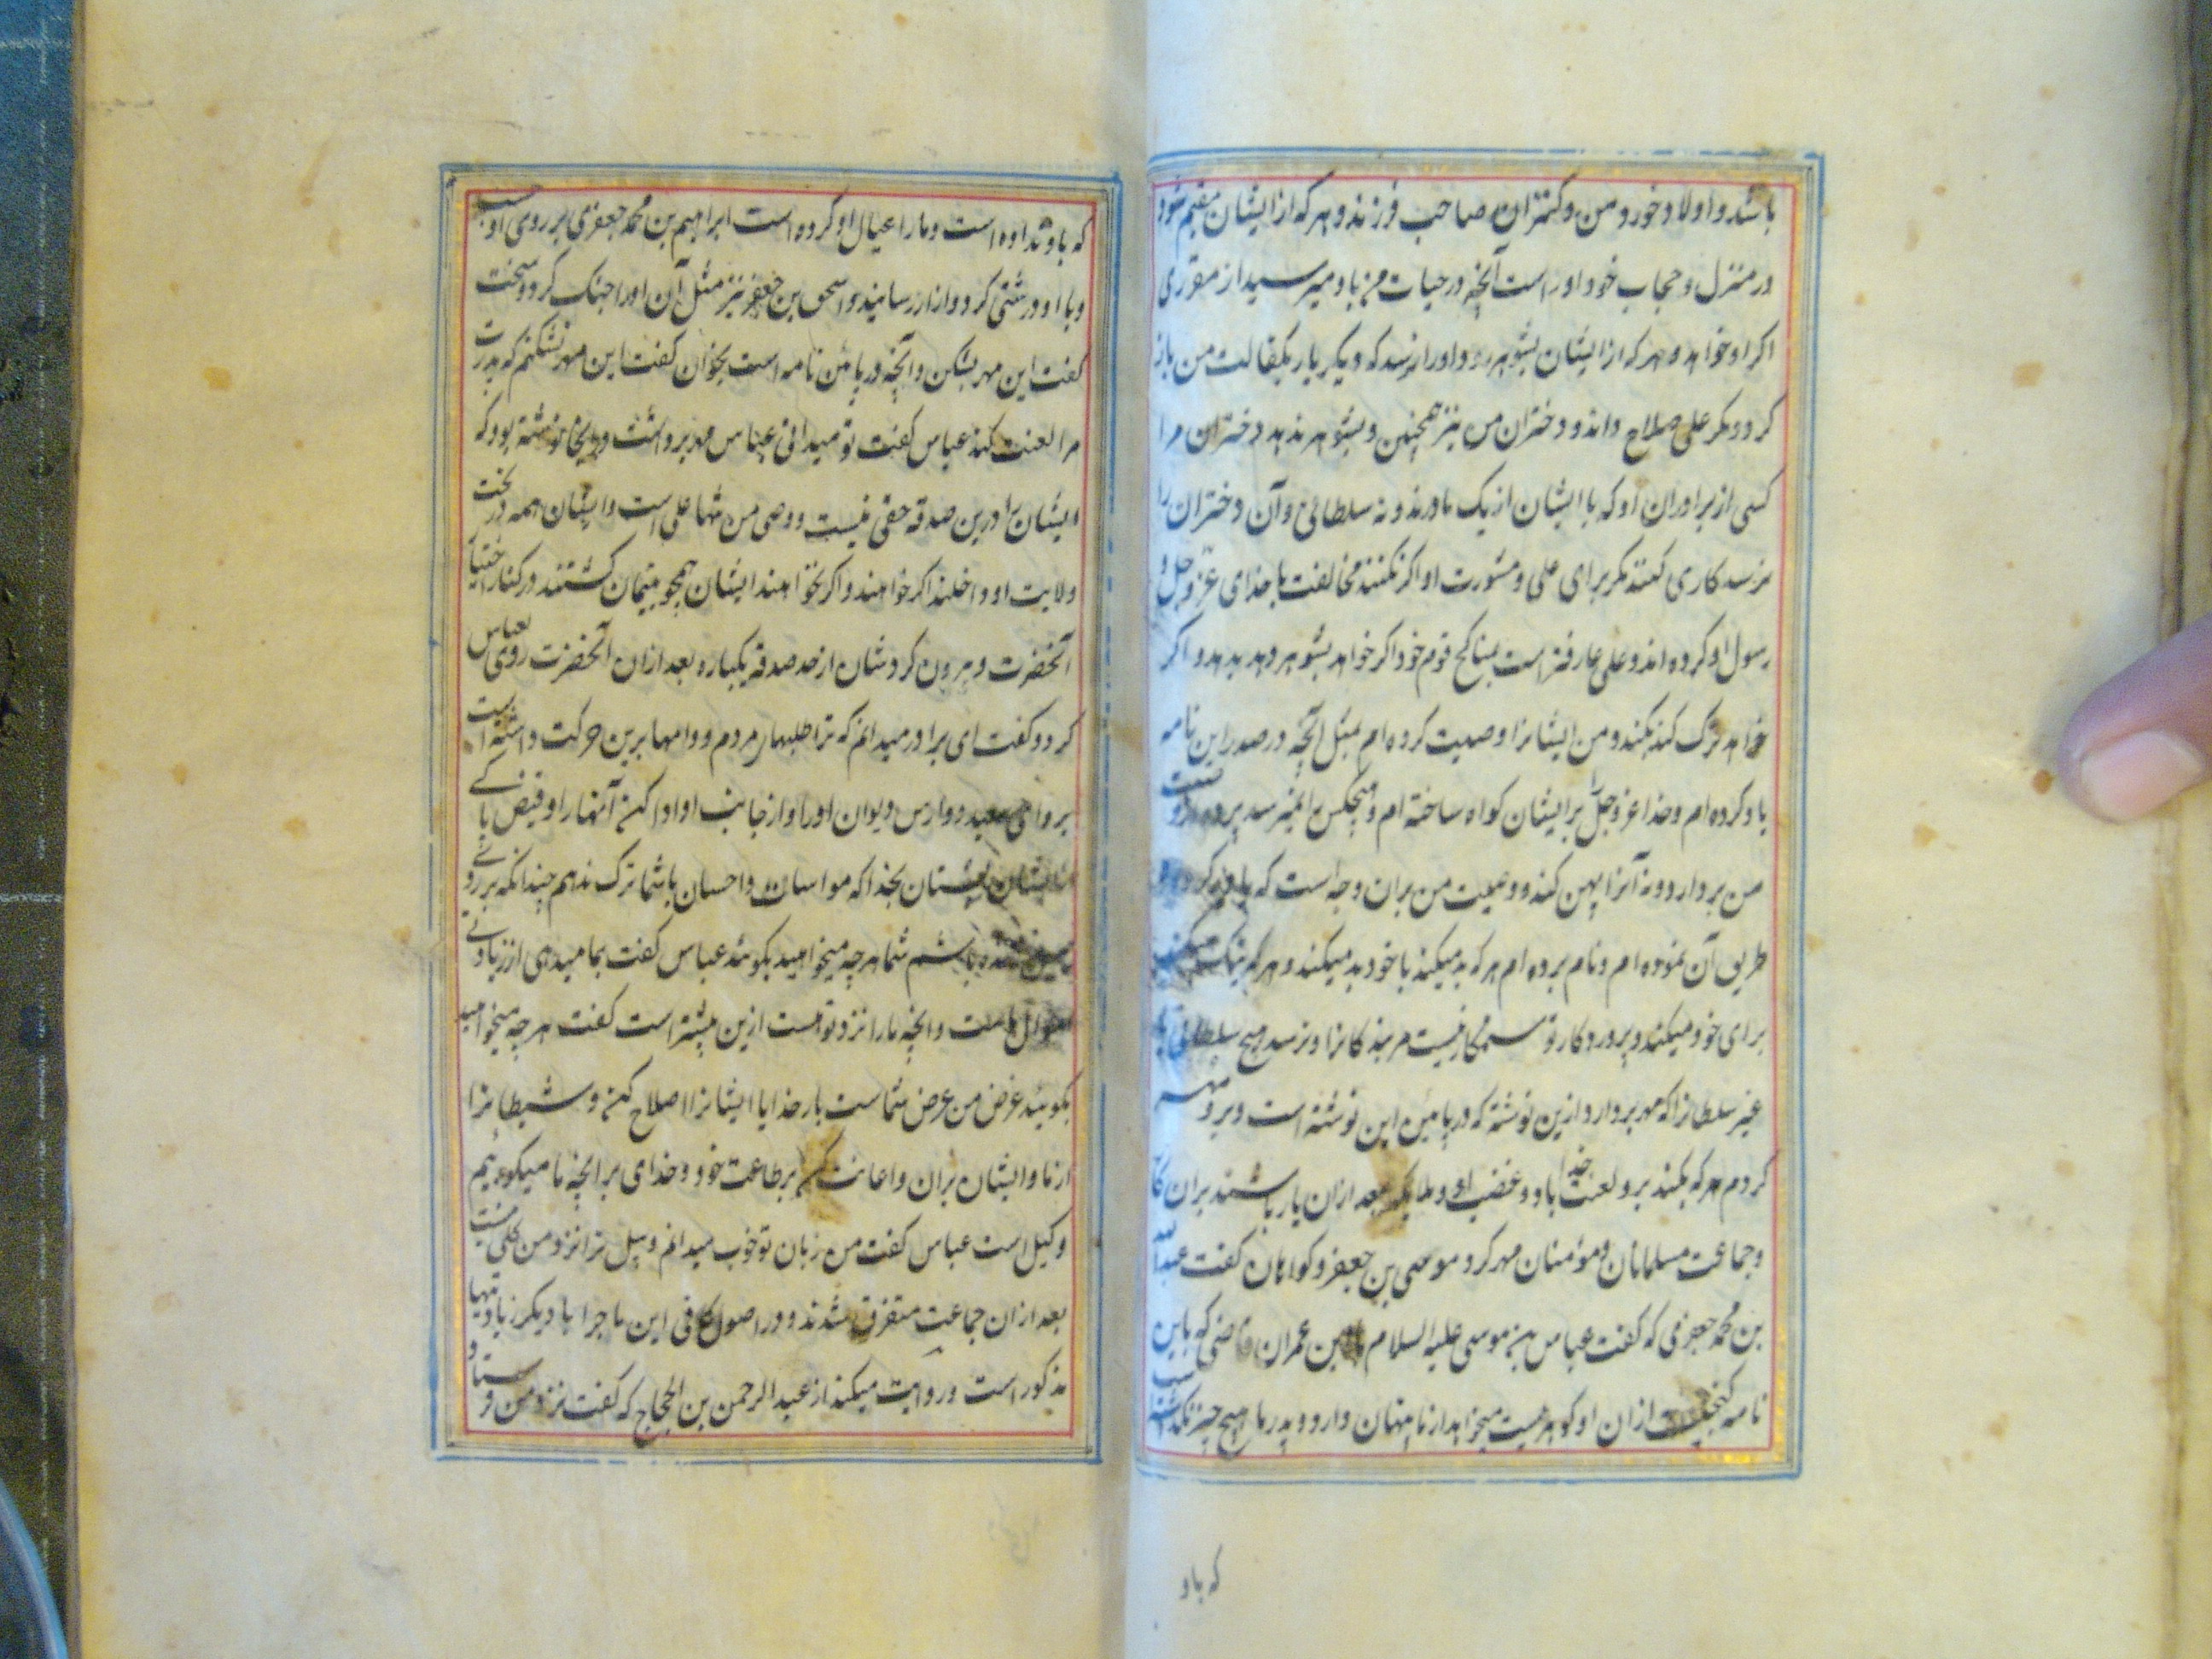 باشد و اولاد خورد من و کمتران صاحب فرزند و هر که از ایشان مقیم شود
در منزل و حجاب خود او راست آنچه در حیات من باو میرسید از مقرری
اکر او خواهد و هر که از ایشان بشوهر رود او را نرسد که دیکر بار بکفالت من باز
کردد مکر علی صلاح داند و دختران من نیز همچنین و بشوهر ندهد دختران مرا
کسی از برادران او که با ایشان از یک مادرند و نه سلطانی و آن دختران را
نرسد کاری کنند مکر برای علی و مشورت او اکر نکنند مخالفت با خدای عز و جل و
رسول او کرده اند و علی عارفتر است بمناکح قوم خود اکر خواهد بشوهر دهد بدهد و اکر
خواهد ترک کند بکند و من ایشانرا وصیت کرده ام بمثل آنچه در صدر این نامه
یاد کرده ام و خدا عز و جل را بر ایشان کواه ساخته ام و هیچکس را نمیرسد پرده از وصیت
من بردارد و نه آنرا پهن کند و وصیت من بران وجه است که یاد کرده
طریق آن نموده ام و نام برده ام هر که بد میکند با خود بد میکند و هر که نیک میکند
برای خود میکند و پروردکار تو ستمکار نیست مر بندکانرا و نرسد هیچ سلطانی یا
غیر سلطانرا که مهر بردارد ازین نوشته که در پایین این نوشته است و برو مهر
کردم هر که بکند برو لعنت خدا باد و غضب او و ملایکه بعد ازان یار باشند بران
و جماعت مسلمانان و مؤمنان مهر کرد موسی بن جعفر و کواهان کفت عبدالله
بن محمد جعفری که کفت عباس بن موسی علیه السلام بن عمران قاضی که باین
نامه ازان او کوهریست میخواهد از ما پنهان دارد و پدر ما هیچ چیز نکذاشته
که باو
که باو نداده است و ما را عیال او کرده است ابراهیم بن محمد جعفری بر روی او جست
و با او درشتی کرد و ازار رسانید و اسحق بن جعفر نیز مثل آن او را جنک کرد و سخت
کفت این مهر بشکن و آنچه در پائین نامه است بخوان کفت این مهر نشکنم که پدرت
مرا لعنت کند عباس کفت تو میدانی عباس مهر برداشت و دریخا نوشته بود که
ایشان را درین صدقه حقی نیست و وصی من تنها علی است و ایشان همه در تحت
ولایت او داخلند اکر خواهند و اکر نخواهند ایشان همچو یتیمان کشتند در کنار اختیار
آنحضرت و بیرون کردشان از حد صدقه یکباره بعد ازان آنحضرت روی بعباس
کرد و کفت ای برادر میدانم که ترا طلبهای مردم و وامها برین حرکت داشته است
برو ای سعید و وارس دیوان او را و از جانب او ادا کن آنها را و قبض باکی
ایشان بستان بخدا که مواسات و احسان با شما ترک ندهم چندانکه بر روی
زمین زنده باشم شما هرچه میخواهید بکوئید عباس کفت بما میدهی از زیادتی
اموال ماست و آنچه ما را نزد تو هست ازین بیشتر است کفت هرچه میخواهید
بکوئید عرض من عرض شماست بار خدایا ایشانرا اصلاح کن و شیطانرا
از ما و ایشان بران و اعانت کن بر طاعت خود و خدای بر آنچه ما میکوئیم
وکیل است عباس کفت من زبان تو خوب میدانم و بیل ترا نزد من کلی نیست
بعد ازان جماعت متفرق شدند و در اصول کافی این ماجرا با دیکر زیادتیها
مذکور است و روایت میکند از عبدالرحمن بن الحجاج که کفت نزد من فرستاد